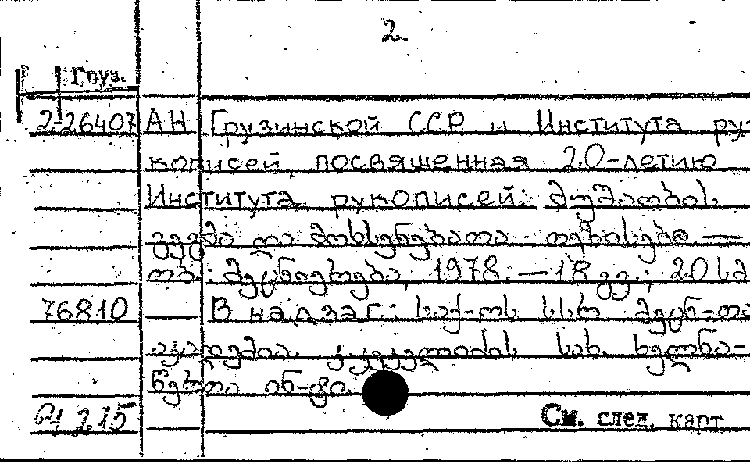 2.
Груз.
2-26407 АН Грузинской ССР и Института ру-
кописей, посвященная 20-летию
Института рукописей: მუშაობის
გეგმა და მოხსენებათა თეზისები —
თბ.: მეცნიერება, 1978. — 18 გვ.; 20 სმ
76810 В надзаг.: საქ-ოს სსრ მეცნ-თა
აკადემია. კ. კეკელიძის სახ. ხელნა-
წერთა ინ-ტი.
См. след. карт.